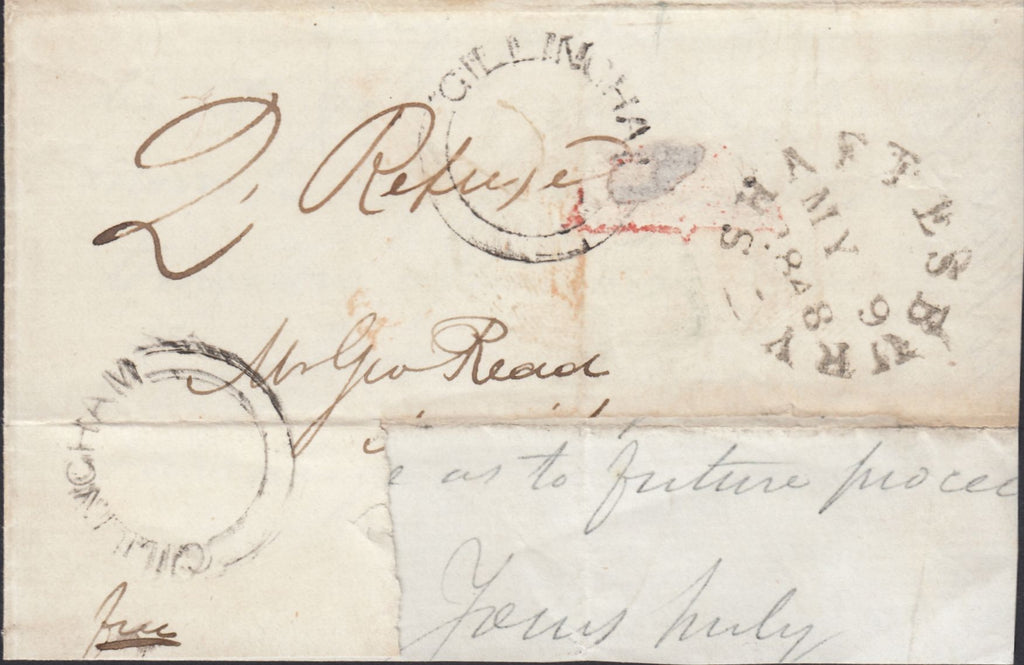 GILLINGHA
2 Refused
SHAFTESBURY
MY 9
1848
Mr Geo Read
GILLINGHAM
as to future procee
Yours truly
free